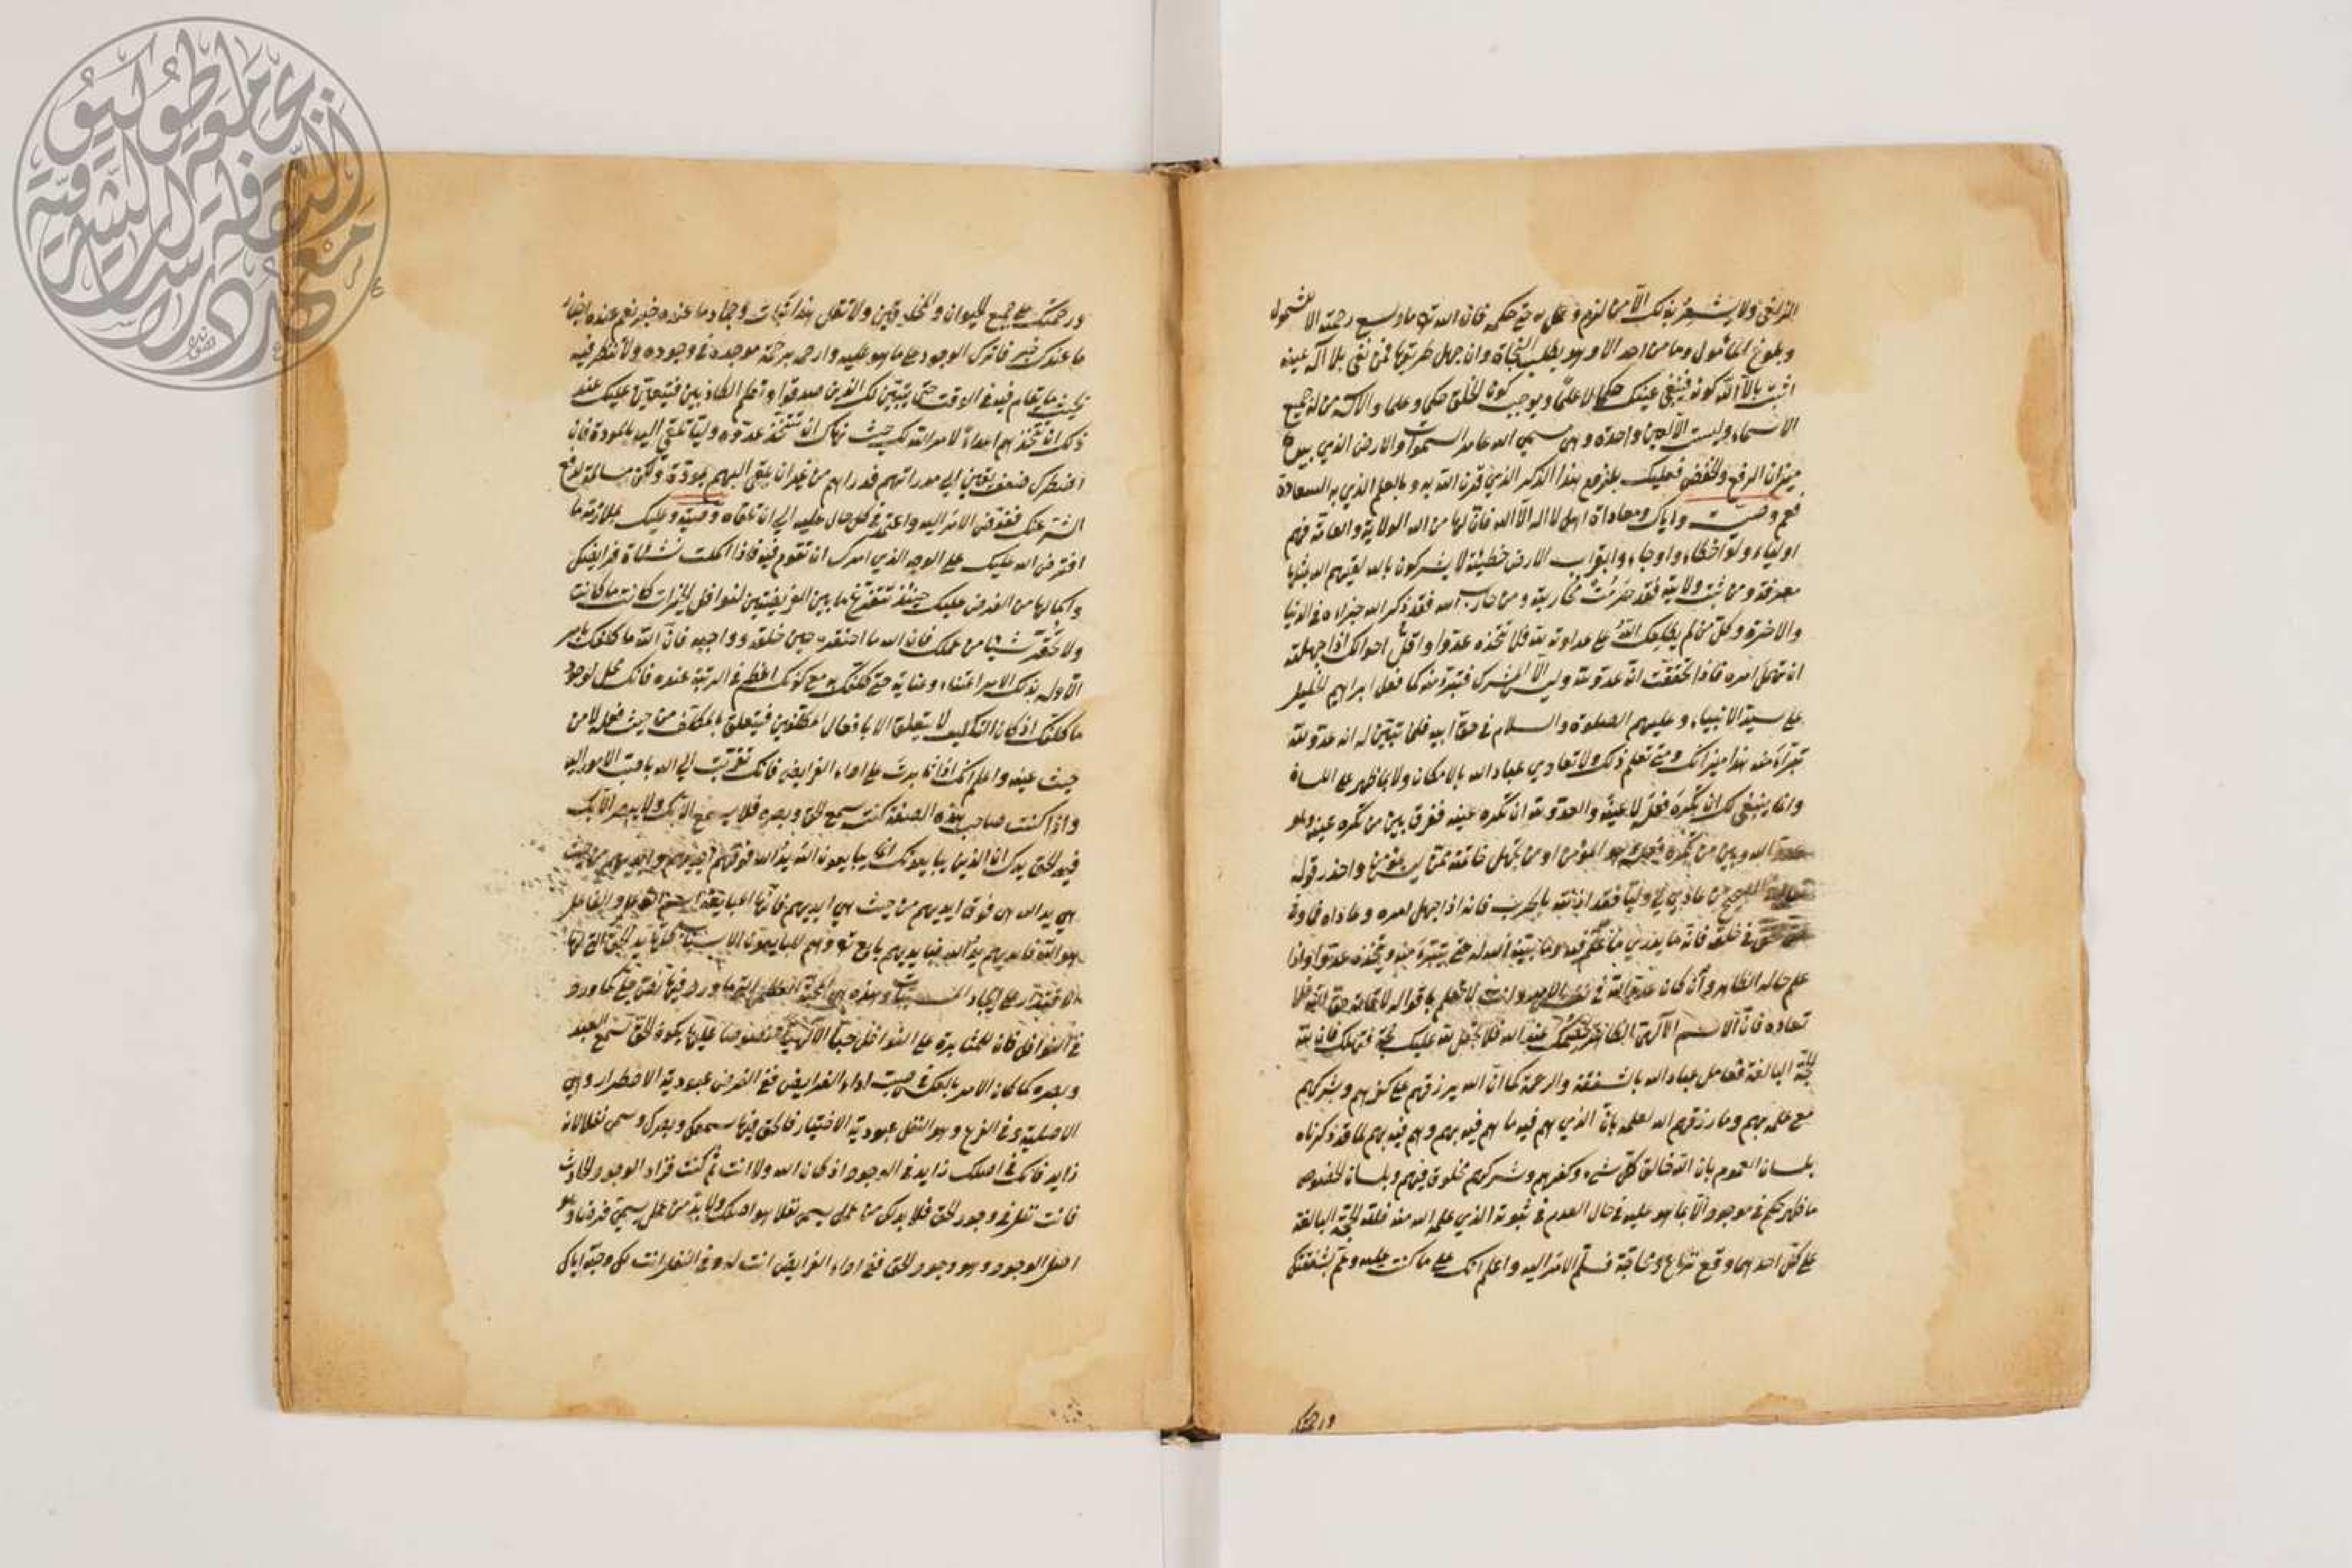 الزلفى ولا يشعر بذلك الا من لزمه وعمل به حتى حكمه فان الله تعالى ما وسع رحمته الا للشمول
وبلوغ المأمول وما من احد الا وهو يطلب النجاة وان جهل طريقها فمن نفى بلا اله عينه
اثبت بالا الله كونه فينتفي عينك حكما لا علما ويوجب كون الحق حكما وعلما والاله من له جميع
الاسماء وليست الا لعين واحدة وهي مسمى الله عامر السموات والارض الذي بيده
ميزان الرفع والخفض فعليك بلزوم هذا الذكر الذي قرن الله به وبالعلم الذي به السعادة
فعم وصيت واياك ومعاداة اهل لا اله الا الله فان لها من الله الولاية العامة فهم
اولياء ولو اخطاوا وجاءوا بقراب الارض خطيئة لا يشركون بالله لقيهم الله بمثلها
مغفرة ومن ثبت ولايته فقد حرمت محاربته ومن حارب الله فقد ذكر الله جزاءه في الدنيا
والاخرة وكل من لم يطلعك الله على عداوته لله فلا تتخذه عدوا واقل احوالك اذا جهلته
ان تهمل امره فاذا تحققت انه عدو لله وليس الا المشرك فتبرأ منه كما فعل ابراهيم الخليل
على سيد الانبياء وعليهم الصلوة والسلام في حق ابيه فلما تبين له انه عدو لله
تبرأ منه هذا ميزانك ومتى تعلم ذلك ولا تعادي عباد الله بالامكان ولا بما ظهر على اللسان
وانما ينبغي لك ان تكره فعله لا عينه والعدو لله ان تكره عينه ففرق بين من تكره عينه وهو
عدو الله وبين من تكره فعله وهو المؤمن او من تجهل خاتمته ممن ليس بمؤمن واحذر قوله
الصحيح من عادى لي وليا فقد اذنته بالحرب فانه اذا جهل امره وعاداه فما وفى
حق الحق في خلقه فانه ما يدري ما علم الله فيه وما بينه الله له حتى يتبرأ منه ويتخذه عدوا واذا
علم حاله الظاهر وان كان عدو الله في نفس الامر وانت لا تعلم فواله لاقامة حق الله فلا
تعاده فان الاسم الالهي الظاهر يخصمك عند الله فلا تجعل لله عليك حجة فتهلك فان لله
الحجة البالغة فعامل عباد الله بالشفقة والرحمة كما ان الله يرزقهم على كفرهم وشركهم
مع علمه بهم وما رزقهم الا لعلمه بان الذي هم فيه ما هم فيه بهم وهم فيه بهم لما قد ذكرناه
بلسان العموم بان الله خالق كل شيء وكفرهم وشركهم مخلوق فيهم وبلسان الخصوص
ما ظهر حكم في موجود الا بما هو عليه في حال العدم في ثبوته الذي علمه الله منه فلله الحجة البالغة
على كل احد مهما وقع نزاع ومحاجة فسلم الامر اليه واعلم انك على ما كنت عليه وعم بشفقتك
ورحمتك
ورحمتك على جميع الحيوان والمخلوقين ولا تقل هذا نبات وجماد ما عنده خبر نعم عنده اخبار
ما عندك خبر فاترك الوجود على ما هو عليه وارحمه برحمة موجده في وجوده ولا تنظر فيه
بحيث ما يقام فيه في الوقت حتى يتبين لك الذين صدقوا وتعلم الكاذبين فيتعين عليك عند
ذلك ان تتخذهم اعداء لامر الله لك حيث نهاك ان تتخذ عدوه وليا تلقي اليه بالمودة فان
اضطرك ضعف يقين الى مداراتهم فدراهم من غير ان تلقي اليهم بمودة ولكن مسالمة لدفع
الشر عنك ففوض الامر اليه واعتمد في كل حال عليه الى ان تلقاه وصية وعليك بملازمة ما
افترض الله عليك على الوجه الذي امرك ان تقوم فيه فاذا اكملت نشأة فرايضك
واكمالها من الفرض عليك حينئذ تتفرغ ما بين الفريضتين لنوافل الخيرات كانت ما كانت
ولا تحقر شيئا من عملك فان الله ما احتقره حين خلقه واوجبه فان الله ما كلفك بامر
الا وله بذلك الامر اعتناء وعناية حتى كلفك به مع كونك اعظم في الرتبة عنده فانك محل لوجود
ما كلفك اذ كان التكليف لا يتعلق الا بافعال المكلفين فيتعلق بالمكلف من حيث فعله لا من
حيث عينه واعلم انك اذا ثابرت على اداء الفرايض فانك تقربت الى الله باحب الامور اليه
واذا كنت صاحب هذه الصفة كنت سمع الحق وبصره فلا يسمع الا بك ولا يبصر الا بك
فيد الحق يدك ان الذين يبايعونك انما يبايعون الله يد الله فوق ايديهم وايديهم من حيث
هي يد الله هي فوق ايديهم من حيث هي ايديهم فانها المبايعة اسم الفاعل والفاعل
هو الله فايديهم يد الله فبايديهم بايع تعالى وهم المبايعون الاسباب كلها يد الحق التي لها
الاقتدار على ايجاد المسببات وهذه هي المحبة العظمى التي ما ورد فيها نص جلي كما ورد
في النوافل فان للمثابرة على النوافل حبا الهيا منصوصا عليه يكون الحق سمع العبد
وبصره كما كان الامر بالعكس في حب اداء الفرايض ففي الفرض عبودية الاضطرار وهي
الاصلية وفي الفرع وهو النفل عبودية الاختيار فالحق فيها سمعك وبصرك وسمي نفلا لانه
زايد فانك في اصلك زايد في الوجود اذ كان الله ولا انت ثم كنت فزاد الوجود الحادث
فانت نفل في وجود الحق فلا بد لك من عمل يسمى نفلا هو اصلك ولا بد من عمل يسمى فرضا وهو
اصل الوجود وهو وجود الحق ففي اداء الفرايض انت له وفي النفل انت لك وحبه اياك